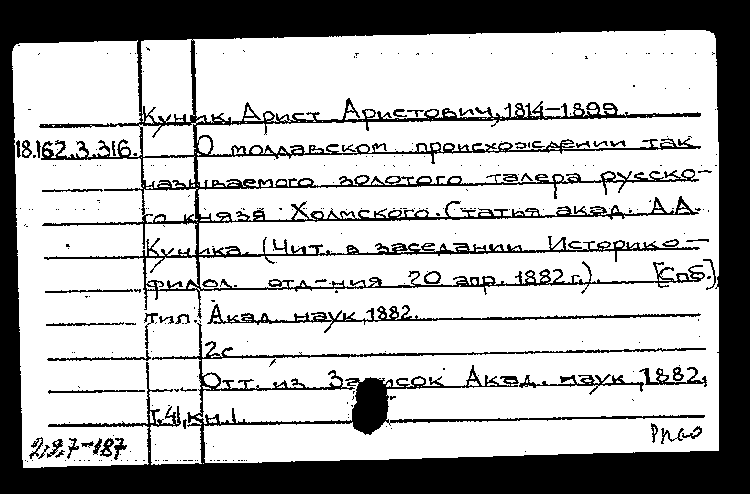 Куник, Арист Аристович, 1814-1899.
18.162.3.316. О молдавском происхождении так
называемого золотого талера русско-
го князя Холмского. Статья акад. А.А.
Куника. (Чит. в заседании Историко-
филол. отд-ния 20 апр. 1882 г.). [Спб.],
тип. Акад. наук, 1882.
2с
Отт. из Записок Акад. наук, 1882,
т.41, кн.1.
227-187